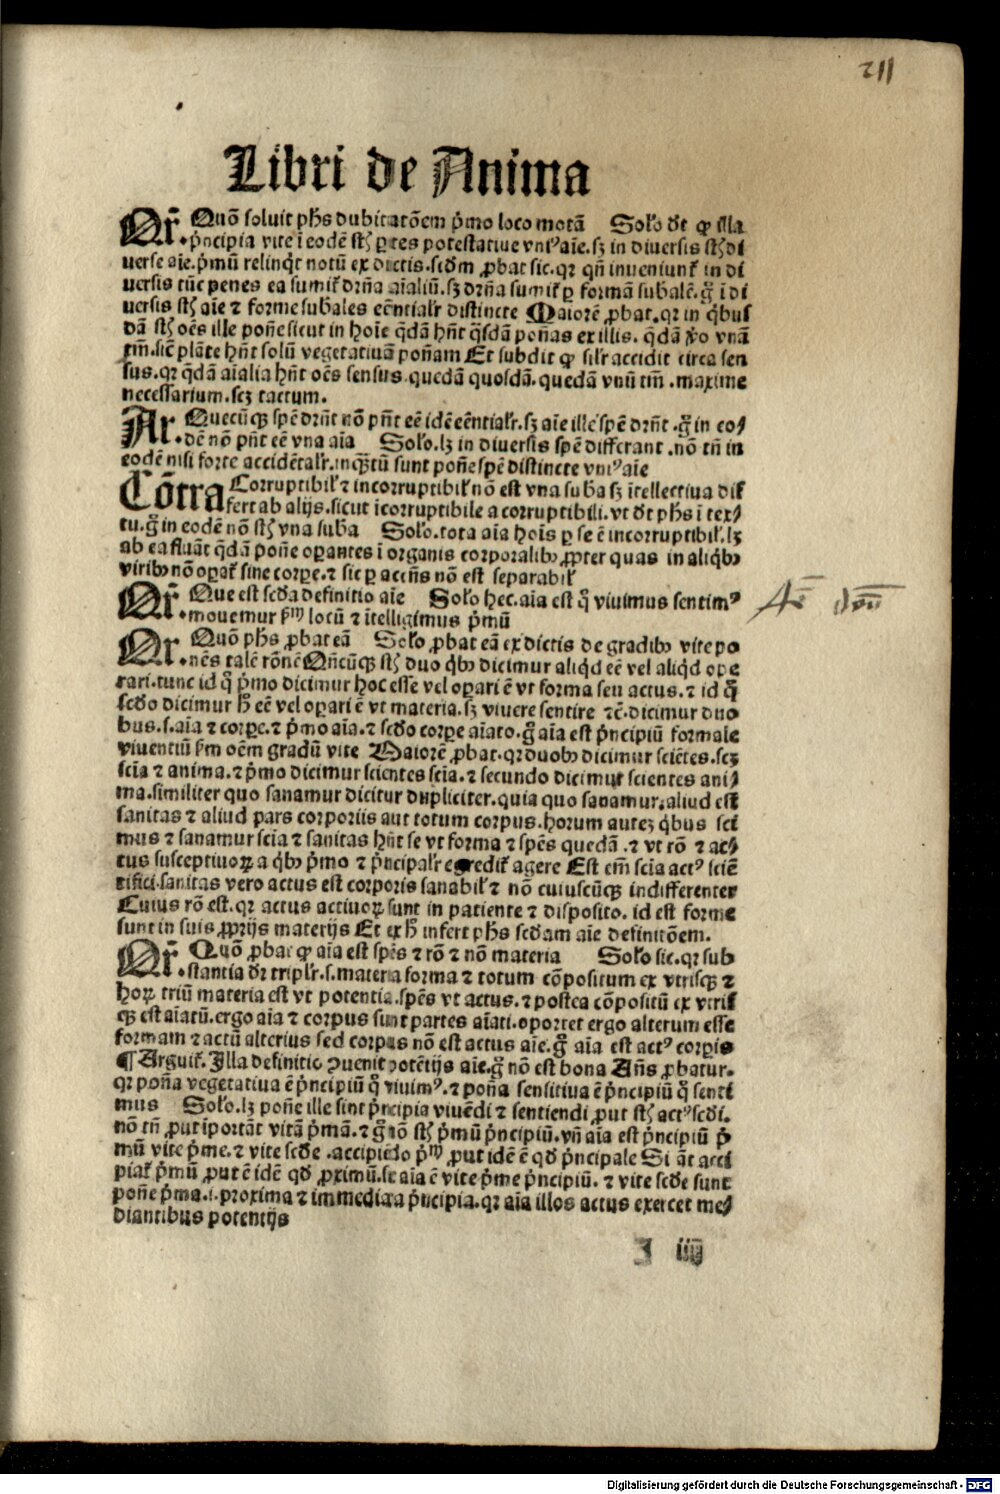 211
Libri de Anima
Qr̄ Quō soluit ph̄s dubitatōem p̄mo loco motā Solo dt ꝙ illa
p̄ncipia vite ī eodē st̄ ptes potestatiue vniꝰ aīe. sꝫ in diuersis st̄ di
uerse aīe. p̄mū relinq̄t notū ex dictis. scd̄m ꝓbat sic. qr qn̄ inueniunt̄ in di
uersis tūc penes ea sumit̄ drn̄a aīaliū. sꝫ drn̄a sumit̄ ꝑ formā subalē. g̊ ī di
uersis st̄ aīe ⁊ forme subales eēntialr̄ distincte Maiorē ꝓbat. qr in q̄bus
dā st̄ oēs ille poñe sicut in hoīe q̄dā hn̄t q̄sdā poñas ex illis. q̄dā ꝟo vnā
tm̄. sic̄ plāte hn̄t solū vegetatiuā poñam Et subdit ꝙ silr̄ accidit circa sen
sus. qr q̄dā aīalia hn̄t oēs sensus. quedā quosdā. quedā vnū tm̄ . maxime
necessarium. scꝫ tactum.
Ar. Quecūqꝫ spē drn̄t nō pn̄t eē idē eēntialr̄. sꝫ aīe ille spē drn̄t . g̊ in eo⸗
dē nō pn̄t eē vna aīa Solo. lꝫ in diuersis spē differant . nō tn̄ in
eodē nisi forte accidētalr̄. inq̄ꝫtū sunt poñe spē distincte vniꝰ aīe
Cōtra Corruptibil̄ ⁊ incorruptibil̄ nō est vna suba sꝫ ītellectiua dif
fert ab alijs. sicut īcorruptibile a corruptibili. vt dt ph̄s ī tex⸗
tu. g̊ in eodē nō st̄ vna suba Solo. tota aīa hoīs ꝑ se ē incorruptibil̄. lꝫ
ab ea fluāt q̄dā poñe oꝑantes ī organis corporalibꝫ ꝓpter quas in aliq̄bꝫ
viribꝫ nō oꝑat̄ sine corꝑe. ⁊ sic ꝑ accn̄s nō est separabil̄
Qr̄ Que est scd̄a definitio aīe Solo hec. aīa est q̊ viuimus sentimꝰ
mouemur ẜm locū ⁊ ītelligimus p̄mū
Qr Quō ph̄s ꝓbat eā Solo ꝓbat eā ex dictis de gradibꝫ vite po
nēs talē rōnē Qn̄cūqꝫ st̄ duo q̄bꝫ dicimur aliq̄d eē vel aliq̄d ope
rari. tunc id q̊ p̄mo dicimur hoc esse vel oꝑari ē vt forma seu actus. ⁊ id q̊
scd̄o dicimur h̄ eē vel oꝑari ē vt materia. sꝫ viuere sentire ⁊c̄. dicimur duo
bus. s. aīa ⁊ corꝑe. ⁊ p̄mo aīa. ⁊ scd̄o corꝑe aīato. g̊ aīa est p̄ncipiū formale
viuentiū ẜm oēm gradū vite Maiorē ꝓbat. qr duobꝫ dicimur sciētes. scꝫ
scīa ⁊ anima. ⁊ p̄mo dicimur scientes scīa. ⁊ secundo dicimur scientes ani⸗
ma. similiter quo sanamur dicitur dupliciter. quia quo sanamur. aliud est
sanitas ⁊ aliud pars corporis aut totum corpus. horum autez q̄bus sci
mus ⁊ sanamur scīa ⁊ sanitas hn̄t se vt forma ⁊ spēs quedā . ⁊ vt rō ⁊ ac⸗
tus susceptiuoꝝ a q̄bꝫ p̄mo ⁊ p̄ncipalr̄ egredit̄ agere Est em̄ scīa actꝰ sciē
tifici. sanitas vero actus est corporis sanabil̄ ⁊ nō cuiuscūqꝫ indifferenter
Cuius rō est. qr actus actiuoꝝ sunt in patiente ⁊ disposito. id est forme
sunt in suis ꝓprijs materijs Et ex h̄ infert ph̄s scd̄am aīe definitōem.
Qr̄ Quō ꝓbat ꝙ aīa est spēs ⁊ rō ⁊ nō materia Solo sic. qr sub
stantia dr̄ triplr̄. s. materia forma ⁊ totum cōpositum ex vtrisqꝫ ⁊
hoꝝ triū materia est vt potentia. spēs vt actus. ⁊ postea cōpositū ex vtris
qꝫ est aīatū. ergo aīa ⁊ corpus sunt partes aīati. oportet ergo alterum esse
formam ⁊ actū alterius sed corpus nō est actus aīe. g̊ aīa est actꝰ corꝑis
¶ Arguit̄. Illa definitio ꝯuenit potētijs aīe. g̊ nō est bona Añs ꝓbatur.
qr poña vegetatiua ē p̄ncipiū q̊ viuimꝰ. ⁊ poña sensitiua ē p̄ncipiū q̊ senti
mus Solo. lꝫ poñe ille sint p̄ncipia viuēdi ⁊ sentiendi ꝓut st̄ actꝰ scd̄i.
nō tn̄ ꝓut īportāt vitā p̄mā. ⁊ g̊ nō st̄ p̄mū p̄ncipiū. vn̄ aīa est p̄ncipiū p̄
mū vite p̄me. ⁊ vite scd̄e . accipiēdo p̄mū ꝓut idē ē qd̄ p̄ncipale Si āt acci
piat̄ p̄mū ꝓut ē idē qd̄ ꝓximū. sic aīa ē vite p̄me p̄ncipiū. ⁊ vite scd̄e sunt
poñe p̄ma. i. proxima ⁊ immediata p̄ncipia. qr aīa illos actus exercet me⸗
diantibus potentijs
J iiij
Digitalisierung gefördert durch die Deutsche Forschungsgemeinschaft - DFG